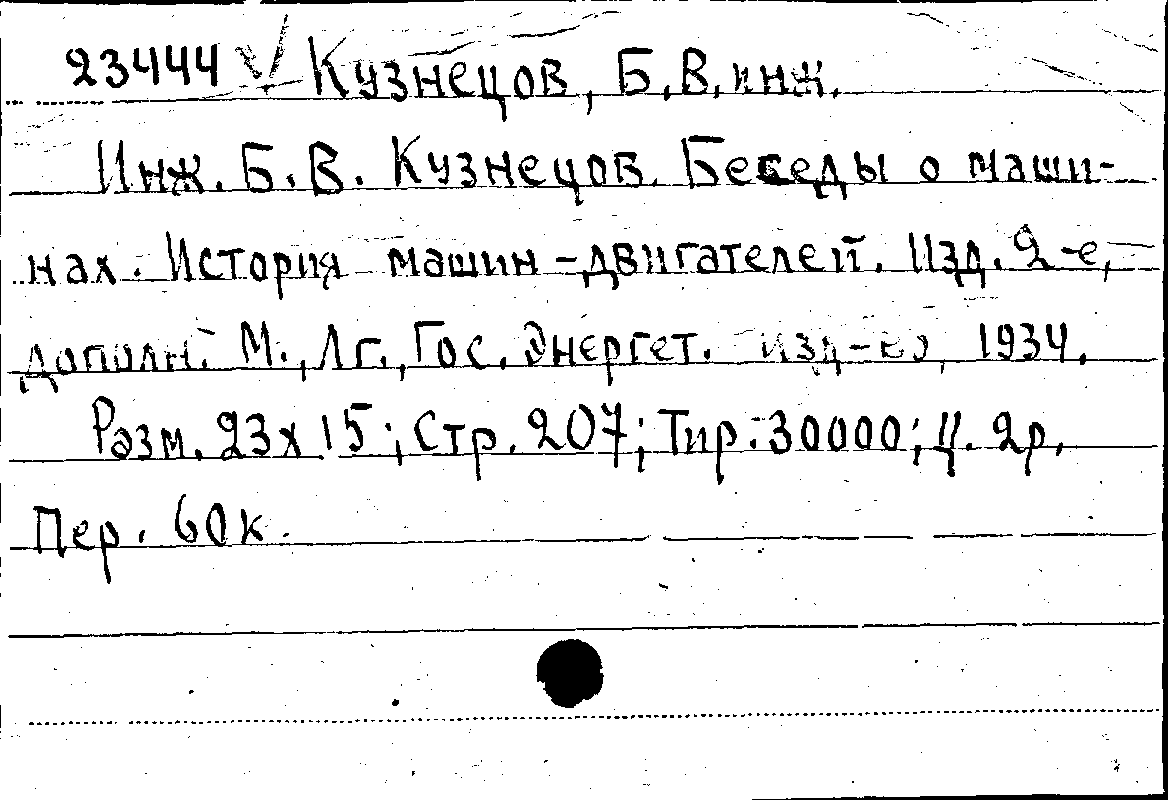 23444 V Кузнецов, Б.В. инж.
Инж. Б.В. Кузнецов. Беседы о маши-
нах. История машин-двигателей. Изд. 2-е,
дополн. М., Лг., Гос. Энергет. изд-во, 1934.
Разм. 23х15; Стр. 207; Тир. 30000; Ц. 2р.
Пер. 60к.